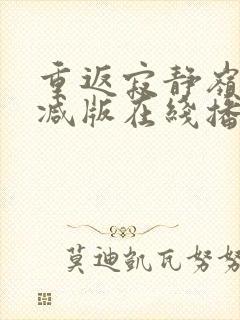 重返寂静嶺
减版在綫播
莫迪凱瓦努努